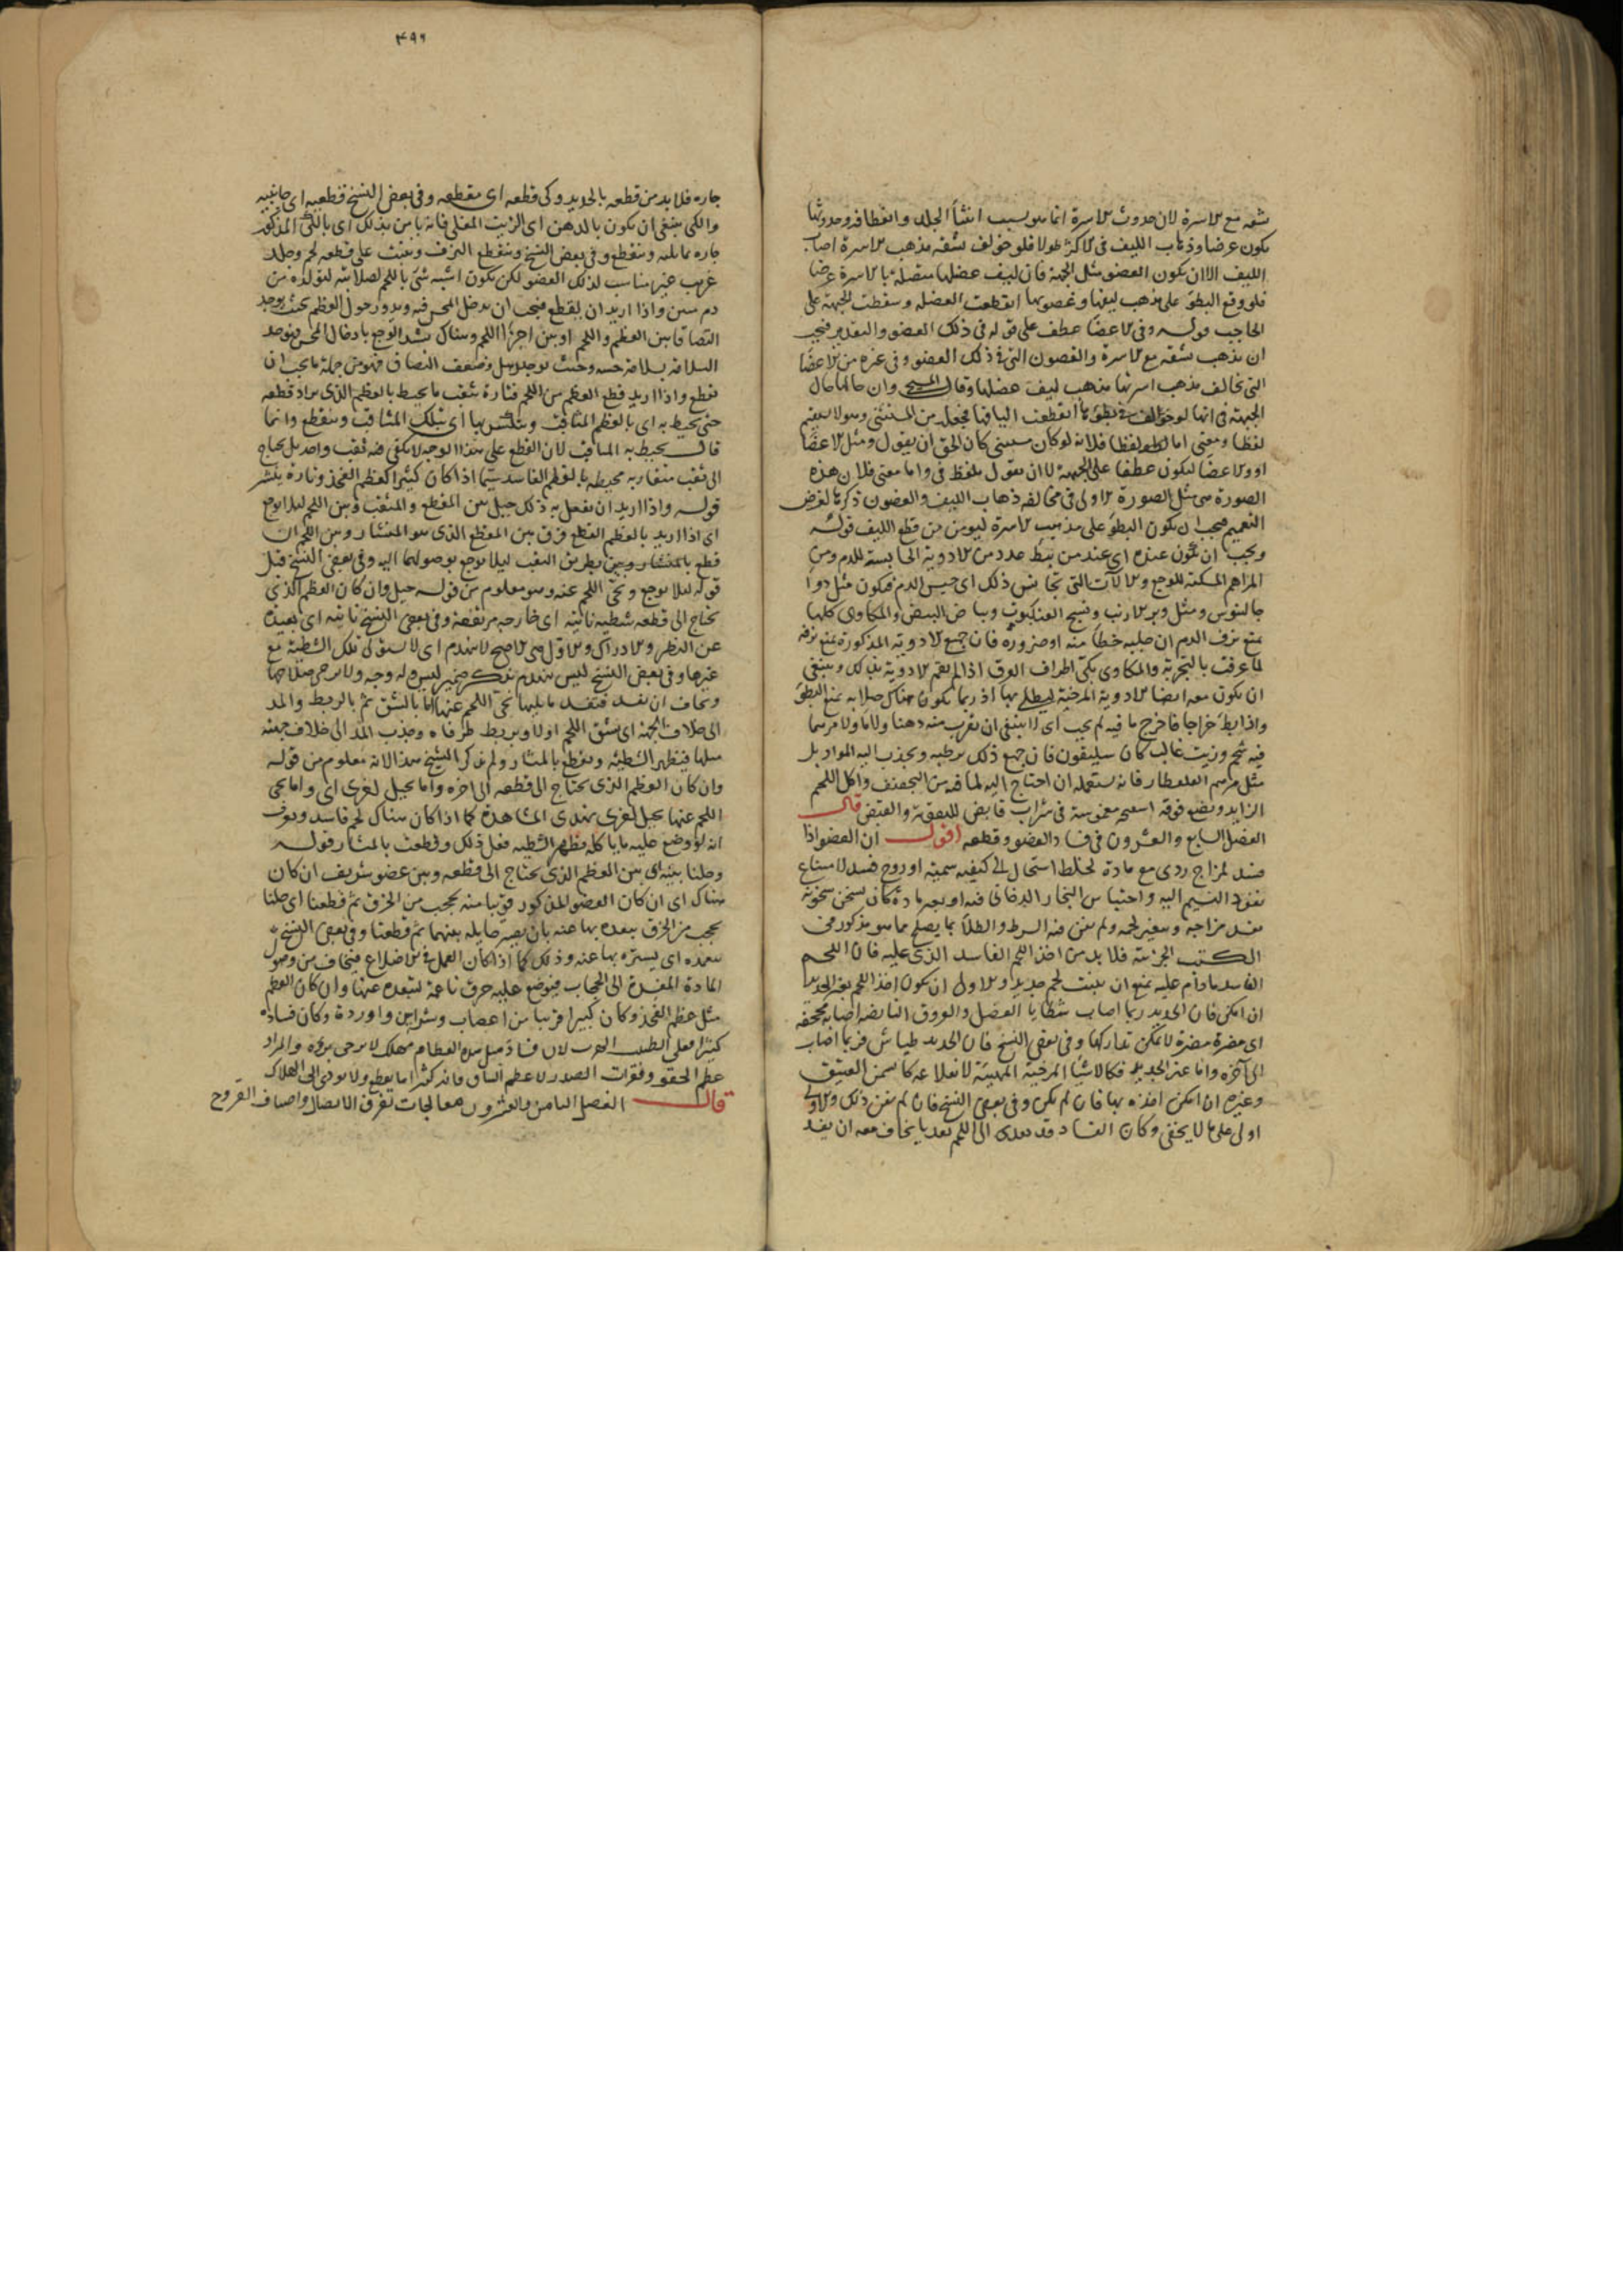 شقه مع الاسرة لان حدوث الاسرة انما هو بسبب انثناء الجلد وانعطافه وحدوثها
يكون عرضا وذهاب الليف فى الاكثر طولا فلو خولف شقه مذهب الاسرة اصاب
الليف الا ان يكون العضو مثل الجبهة فان ليف عضلها متصلة بالاسرة عرضا
فلو وقع البط على مذهب ليفها وغضونها انقطعت العضلة وسقطت الجبهة على
الحاجب قوله وفى الاعضاء عطف على قوله فى ذلك العضو فيجب
ان يذهب شقه مع الاسرة والغضون التى فى ذلك العضو وفى غيره من الاعضاء
التى تخالف مذهب اسرتها مذهب ليف عضلها وقال المسيحى وان حالها حال
الجبهة فى انها لو انقطعت اليافها من المستثنى وهو لا يستقيم
لفظا ومعنى اما لفظا فلانه لو كان مستثنى كان الحق ان يقول ومثل الاعضاء
او والاعضاء ليكون عطفا على الجبهة لا ان يقول بلفظ فى واما معنى فلان هذه
الصورة هى مثل الصورة الاولى فى مخالفة ذهاب الليف والغضون ذكرها لغرض
التعميم فيجب ان يكون البط على مذهب الاسرة ليؤمن من قطع الليف قوله
ويجب ان يكون عنده اى عند من يبط عدد من الادوية الحابسة للدم ومن
المراهم المسكنة للوجع والالات التى تجانس ذلك اى حبس الدم فيكون مثل دواء
جالينوس ومثل وبر الارنب ونسج العنكبوت وبياض البيض والمكاوى كلها
لمنع نزف الدم ان جلبه خطأ منه او ضرورة فان جميع الادوية المذكورة تمنع نزفه
لما عرفت بالتجربة والمكاوى بكى اطراف العرق اذا لم تقم الادوية بذلك وينبغى
ان يكون معه ايضا الادوية المرخية ليطلى بها اذ ربما يكون هناك صلابة تمنع البط
واذا بط خراجا فاخرج ما فيه لم يجب اى لا ينبغى ان يقرب منه دهنا ولا ماء ولا مرهما
فيه شحم وزيت غالب كان سليقون فان جميع ذلك يرطبه ويجذب اليه المواد بل
مثل مرهم القلقطار فانه يستعمله ان احتاج اليه لما فيه من التجفيف واكل اللحم
الزايد ويضع فوقه اسفنجة مغموسة فى شراب قابض للتقوية والقبض قال
الفصل السابع والعشرون فى فساد العضو وقطعه اقول ان العضو اذا
فسد لمزاج ردى مع مادة لخلط استحال الى كيفية سمية او روح فسد لامتناع
نفوذ النسيم اليه واحتباس البخار الدخانى فيه او بغير مادة كان يسخن سخونة
يفسد مزاجه ويتغير لحمه ولم يغن فيه الشرط والطلاء بما يصلح مما هو مذكور فى
الكتب الجزئية فلا بد من اخذ اللحم الفاسد الذى عليه فان اللحم
الفاسد مادام عليه يمنع ان ينبت لحم جديد والاولى ان يكون اخذ اللحم بغير الحديد
ان امكن فان الحديد ربما اصاب شظايا العضل والعروق النابضة اصابة مجحفة
اى مضرة مضرة لا يمكن تداركها وفى بعض النسخ فان الحديد طياش فربما اصاب
الى آخره واما غير الحديد فكالاشياء المرخية المهيئة لانقلاعه كالسمن العتيق
وغيره ان امكن اخذه بها فان لم يكن وفى بعض النسخ فان لم يغن ذلك والاول
اولى على ما لا يخفى وكان الفساد قد تعدى الى اللحم بعد ما يخاف معه ان يفسد
٣٩٦
جاره فلا بد من قطعه بالحديد وكى قطعه اى مقطعه وفى بعض النسخ قطعيه اى جانبيه
والكى ينبغى ان يكون بالدهن اى الزيت المغلى فانه يامن بذلك اى بالكى المذكور
جاره ما يليه وينقطع وفى بعض النسخ وينقطع النزف وينبت على قطعه لحم وجلد
غريب غير مناسب لذلك العضو لكن يكون اشبه شئ باللحم لصلابته لتولده من
دم متين واذا اريد ان يقطع فيجب ان يدخل المجس فيه ويدور حول العظم بحيث يوجد
التصاقا بين العظم واللحم او بين اجزاء اللحم وهناك يشتد الوجع بادخال المجس فيوجد
السلامة وحيث يوجد رهل وضعف التصاق فهو من جملة ما يجب ان
يقطع واذا اريد قطع العظم من اللحم فتارة يثقب ما يحيط بالعظم الذى يراد قطعه
حتى يحيط به اى بالعظم المثاقب وينكسر بها اى بتلك المثاقب وينقطع وانما
قال يحيط به المثاقب لان القطع على هذا الوجه لا يكفى فيه ثقب واحد بل يحتاج
الى ثقب متقاربة محيطة بالعظم الفاسد سيما اذا كان كبيرا كعظم الفخذ وتارة ينشر
قوله واذا اريد ان يفعل به ذلك حيل بين المقطع والمثقب وبين اللحم ليلا يوجع
اى اذا اريد بالعظم القطع فرق بين المقطع الذى هو المنشار وبين اللحم ان
قطع بالمنشار وبين بطريق الثقب ليلا يوجع بوصولهما اليه وفى بعض النسخ قبل
قوله ليلا يوجع ونحى اللحم عنه وهو معلوم من قوله حيل وان كان العظم الذى
يحتاج الى قطعه شظية ناتية اى خارجة مرتفعة وفى بعض النسخ نائية اى بعيدة
عن النظر والادراك والاول هى الاصح لا يتهندم اى لا يستوى تلك الشظية مع
غيرها وفى بعض النسخ ليس يتهندم بتذكير ضمير ليس وله وجه ولا يرجى صلاحها
ويخاف ان تفسد فتفسد ما يليها نحى اللحم عنها اما بالشق ثم بالربط والمد
الى خلاف الجهة اى يشق اللحم اولا ويربط طرفاه ويجذب المد الى خلاف جهة
ميلها فيظهر الشظية ويقطع بالمنشار ولم يذكر الشيخ هذا لانه معلوم من قوله
وان كان العظم الذى يحتاج الى قطعه الى اخره واما بحيل اخرى اى واما نحى
اللحم عنها بحيل اخرى يهتدى المشاهدة كما اذا كان هناك لحم فاسد ويعرف
انه لو وضع عليه ما ياكله يظهر الشظية فعل ذلك وقطعت بالمنشار قوله
وحلنا بينه اى بين العظم الذى يحتاج الى قطعه وبين عضو شريف ان كان
هناك اى ان كان العضو المذكور قريبا منه بحجب من الخرق ثم قطعنا اى حلنا
بحجب من الخرق يبعده بها عنه بان يصير حايلة بينهما ثم قطعنا وفى بعض النسخ
يبعده اى يستره بها عنه وذلك كما اذا كان العمل فى الاضلاع فيخاف من وصول
المادة المفسدة الى الحجاب فيوضع عليه خرق ناعمة لتبعده عنها وان كان العظم
مثل عظم الفخذ وكان كبيرا قريبا من اعصاب وشرايين واوردة وكان فساده
كثيرا فعلى الطبيب الهرب لان فساد مثل هذه العظام مهلك لا يرجى برؤه والمراد
عظم الحقو وفقرات الصدر لا عظم الساق فانه كثيرا ما يقطع ولا يودى الى الهلاك
قال الفصل الثامن والعشرون معالجات تفرق الاتصال واصناف القروح